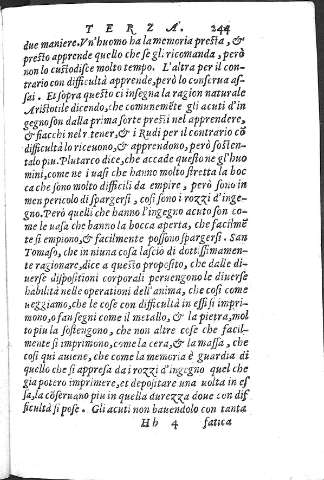 TERZA. 244
due maniere. Vn'huomo ha la memoria presta, &
presto apprende quello che se gli ricomanda, però
non lo custodisce molto tempo. L'altra per il con-
trario con difficultà apprende, però lo conserua as-
sai. Et sopra questo ci insegna la ragion naturale
Aristotile dicendo, che comunemẽte gli acuti d'in
gegno son dalla prima sorte presti nel apprendere,
& fiacchi nel r tener, & i Rudi per il contrario cõ
difficultà lo riceuono, & apprendono, però sosten-
talo piu. Plutarco dice, che accade questo ne gl'huo
mini, come ne i uasi che hanno molto stretta la boc
ca che sono molto difficili da empire, però sono in
men pericolo di spargersi, così sono i rozzi d'inge-
gno. Però quelli che hanno l'ingegno acuto son co-
me le uasa che hanno la bocca aperta, che facilmẽ
te si empiono, & facilmente possono spargersi. San
Tomaso, che in niuna cosa lasciò di dottissimamen-
te ragionare, dice a questo proposito, che dalle di-
uerse dispositioni corporali peruengono le diuerse
habilità nelle operationi dell'anima, che così come
ueggiamo, che le cose con difficultà in essi si impri-
mono, o fan segni come il metallo, & la pietra, mol
to piu la sostengono, che non altre cose che facil-
mente si imprimono, come la cera, & la massa, che
così qui auiene, che come la memoria è guardia di
quello che si appresa da i rozzi d'ingegno quel che
gia potero imprimere, et depositare una uolta in es
sa, la cõseruano piu in quella durezza doue con dif
ficultà si pose. Gli acuti non hauendolo con tanta
Hh 4 fatica